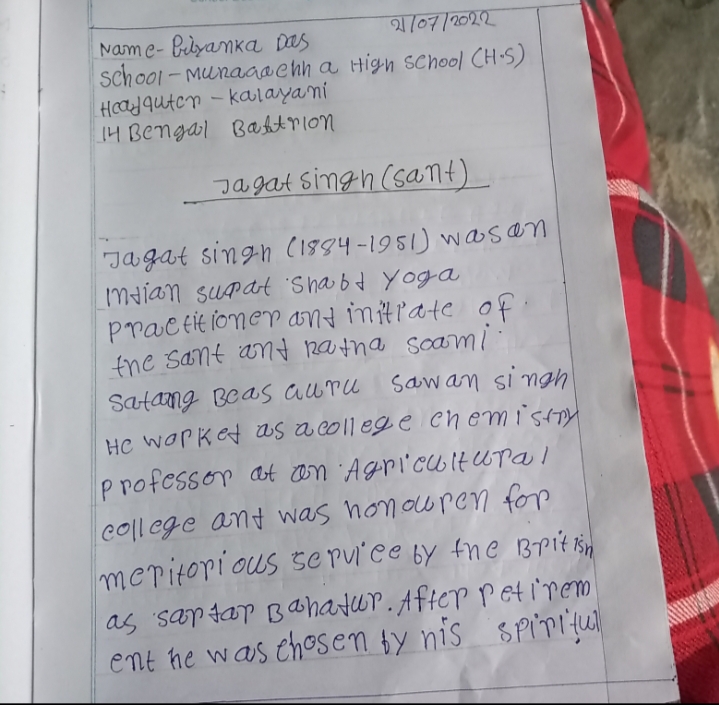 21/07/2022
Name- Priyanka Das
School-Munagachha High School (H.S)
Headquter - Kalayani
14 Bengal Battrion
Jagat singh (sant)
Jagat singh (1884-1951) was an
Indian surat shabd Yoga
practitioner and initiate of
the sant and Radha soami
Satang Beas Guru sawan singh
He worked as a college chemistry
professor at an Agricultural
college and was honouren for
meritorious service by the British
as sardar Bahadur. After retirem
ent he was chosen by his spiritul